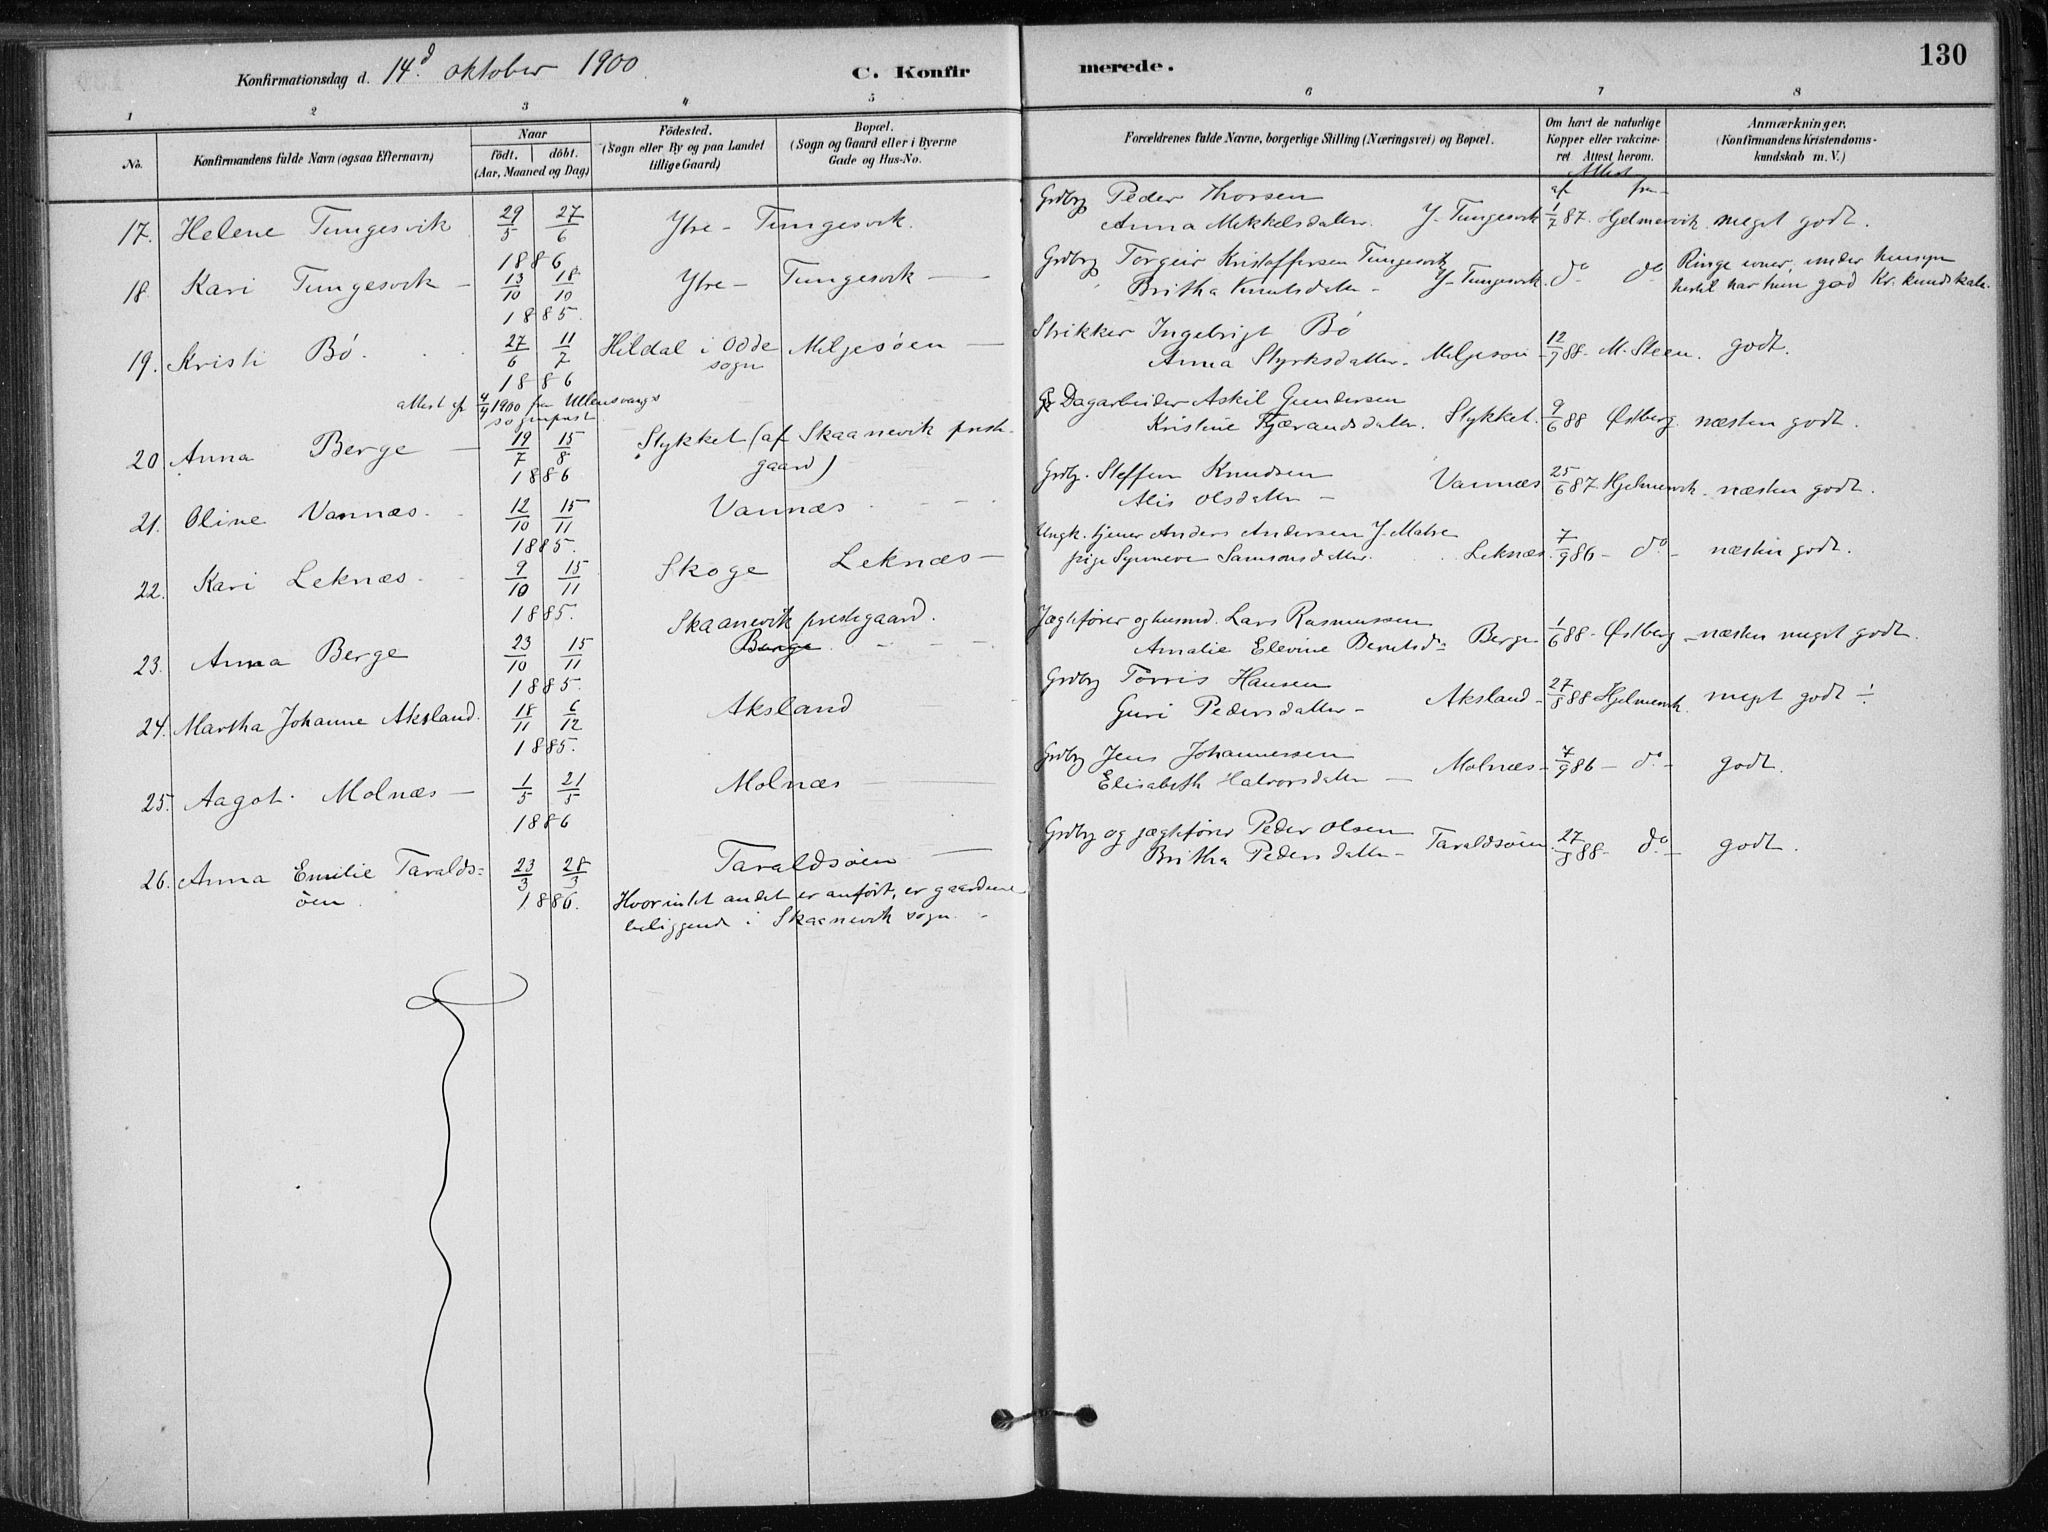 Konfirmationsdag d. 14d oktober 1900. C. Konfirmerede. 130
1 2 3 4 5 6 7 8
No. Konfirmandens fulde Navn (ogsaa Efternavn) Naar födt. döbt. (Aar, Maaned og Dag) Födested. (Sogn eller By og paa Landet tillige Gaard) Bopæl. (Sogn og Gaard eller i Byerne Gade og Hus-No. Forældrenes fulde Navne, borgerlige Stilling (Næringsvei) og Bopæl. Om havt de naturlige Kopper eller vakcineret Attest herom. Anmærkninger, (Konfirmandens Kristendomskundskab m. V.)
Attest af fra
17. Helene Tungesvik 29/5 27/6 1886 Ytre Tungesvik. Grdbr Peder Thorsen Anna Mikkelsdatter. Y. Tungesvik 1/7 87. Hjelmervik meget godt.
18. Kari Tungesvik 13/10 18/10 1885. Ytre Tungesvik Grdbr Torgeir Kristoffersen Tungesvik Britha Knutsdatter Y. Tungesvik. do do Ringe evner, under hensyn hertil har hun god Kr. kundskab.
19. Kristi Bö. 27/6 11/7 1886 Hildal i Odde sogn Miljesöen Strikker Ingebrigt Bö Anna Styrksdatter. Miljesöen 12/9 88 M. Steen. godt.
attest af 4/4 1900 fra Ullensvangs sogneprest
20 Anna Berge 19/7 15/8 1886 Stykket (af Skaanevik prestegaard) Dagarbeider Askil Gundersen Kristine Fjærandsdatter. Stykket. 9/6 88 Østberg næsten godt.
21. Oline Vannæs. 12/10 15/11 1885. Vannæs Grdbr. Steffen Knudsen Alis Olsdatter Vannæs 25/6 87 Hjelmervik næsten godt.
22. Kari Leknæs 9/10 15/11 1885. Skoge Leknæs Ungk. tjener Anders Andersen Y. Matre pige Synneve Samsonsdatter. Leknæs. 7/9 86 do næsten godt.
23. Anna Berge 23/10 15/11 1885. Skaanevik prestegaard. Berge Jægtfører og husmd. Lars Rasmussen Amalie Elevine Berntsdr Berge 1/6 88 Østberg næsten meget godt.
24. Martha Johanne Aksland. 18/11 6/12 1885. Aksland Grdbr Torris Hansen Guri Pedersdatter Aksland 27/8 88 Hjelmervik. meget godt ÷
25. Aagot Molnæs 1/5 21/5 1886 Molnæs Grdbr Jens Johannessen Elisabeth Halvorsdatter Molnæs 7/9 86 do godt.
26. Anna Emilie Taraldsöen. 23/3 28/3 1886. Taraldsöen Grdbr og jægtfører Peder Olsen Britha Pedersdatter Taraldsöen. 27/8 88 do godt.
Hvor intet andet er anfört, er gaardene
beliggende i Skaanevik sogn.